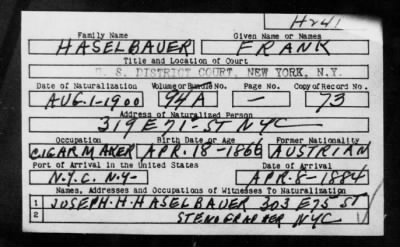 H241
Family Name Given Name or Names
HASELBAUER FRANK
Title and Location of Court
U. S. DISTRICT COURT, NEW YORK, N.Y.
Date of Naturalization Volume or Bundle No. Page No. Copy of Record No.
AUG. 1-1900 94A — 73
Address of Naturalized Person
319 E 71-ST NYC
Occupation Birth Date or Age Former Nationality
CIGARMAKER APR. 18-1866 AUSTRIAN
Port of Arrival in the United States Date of Arrival
N.Y.C. N.Y- APR-8-1884
Names, Addresses and Occupations of Witnesses To Naturalization
1 JOSEPH-H-HASELBAUER 303 E75 ST
2 STENOGRAPHER NYC